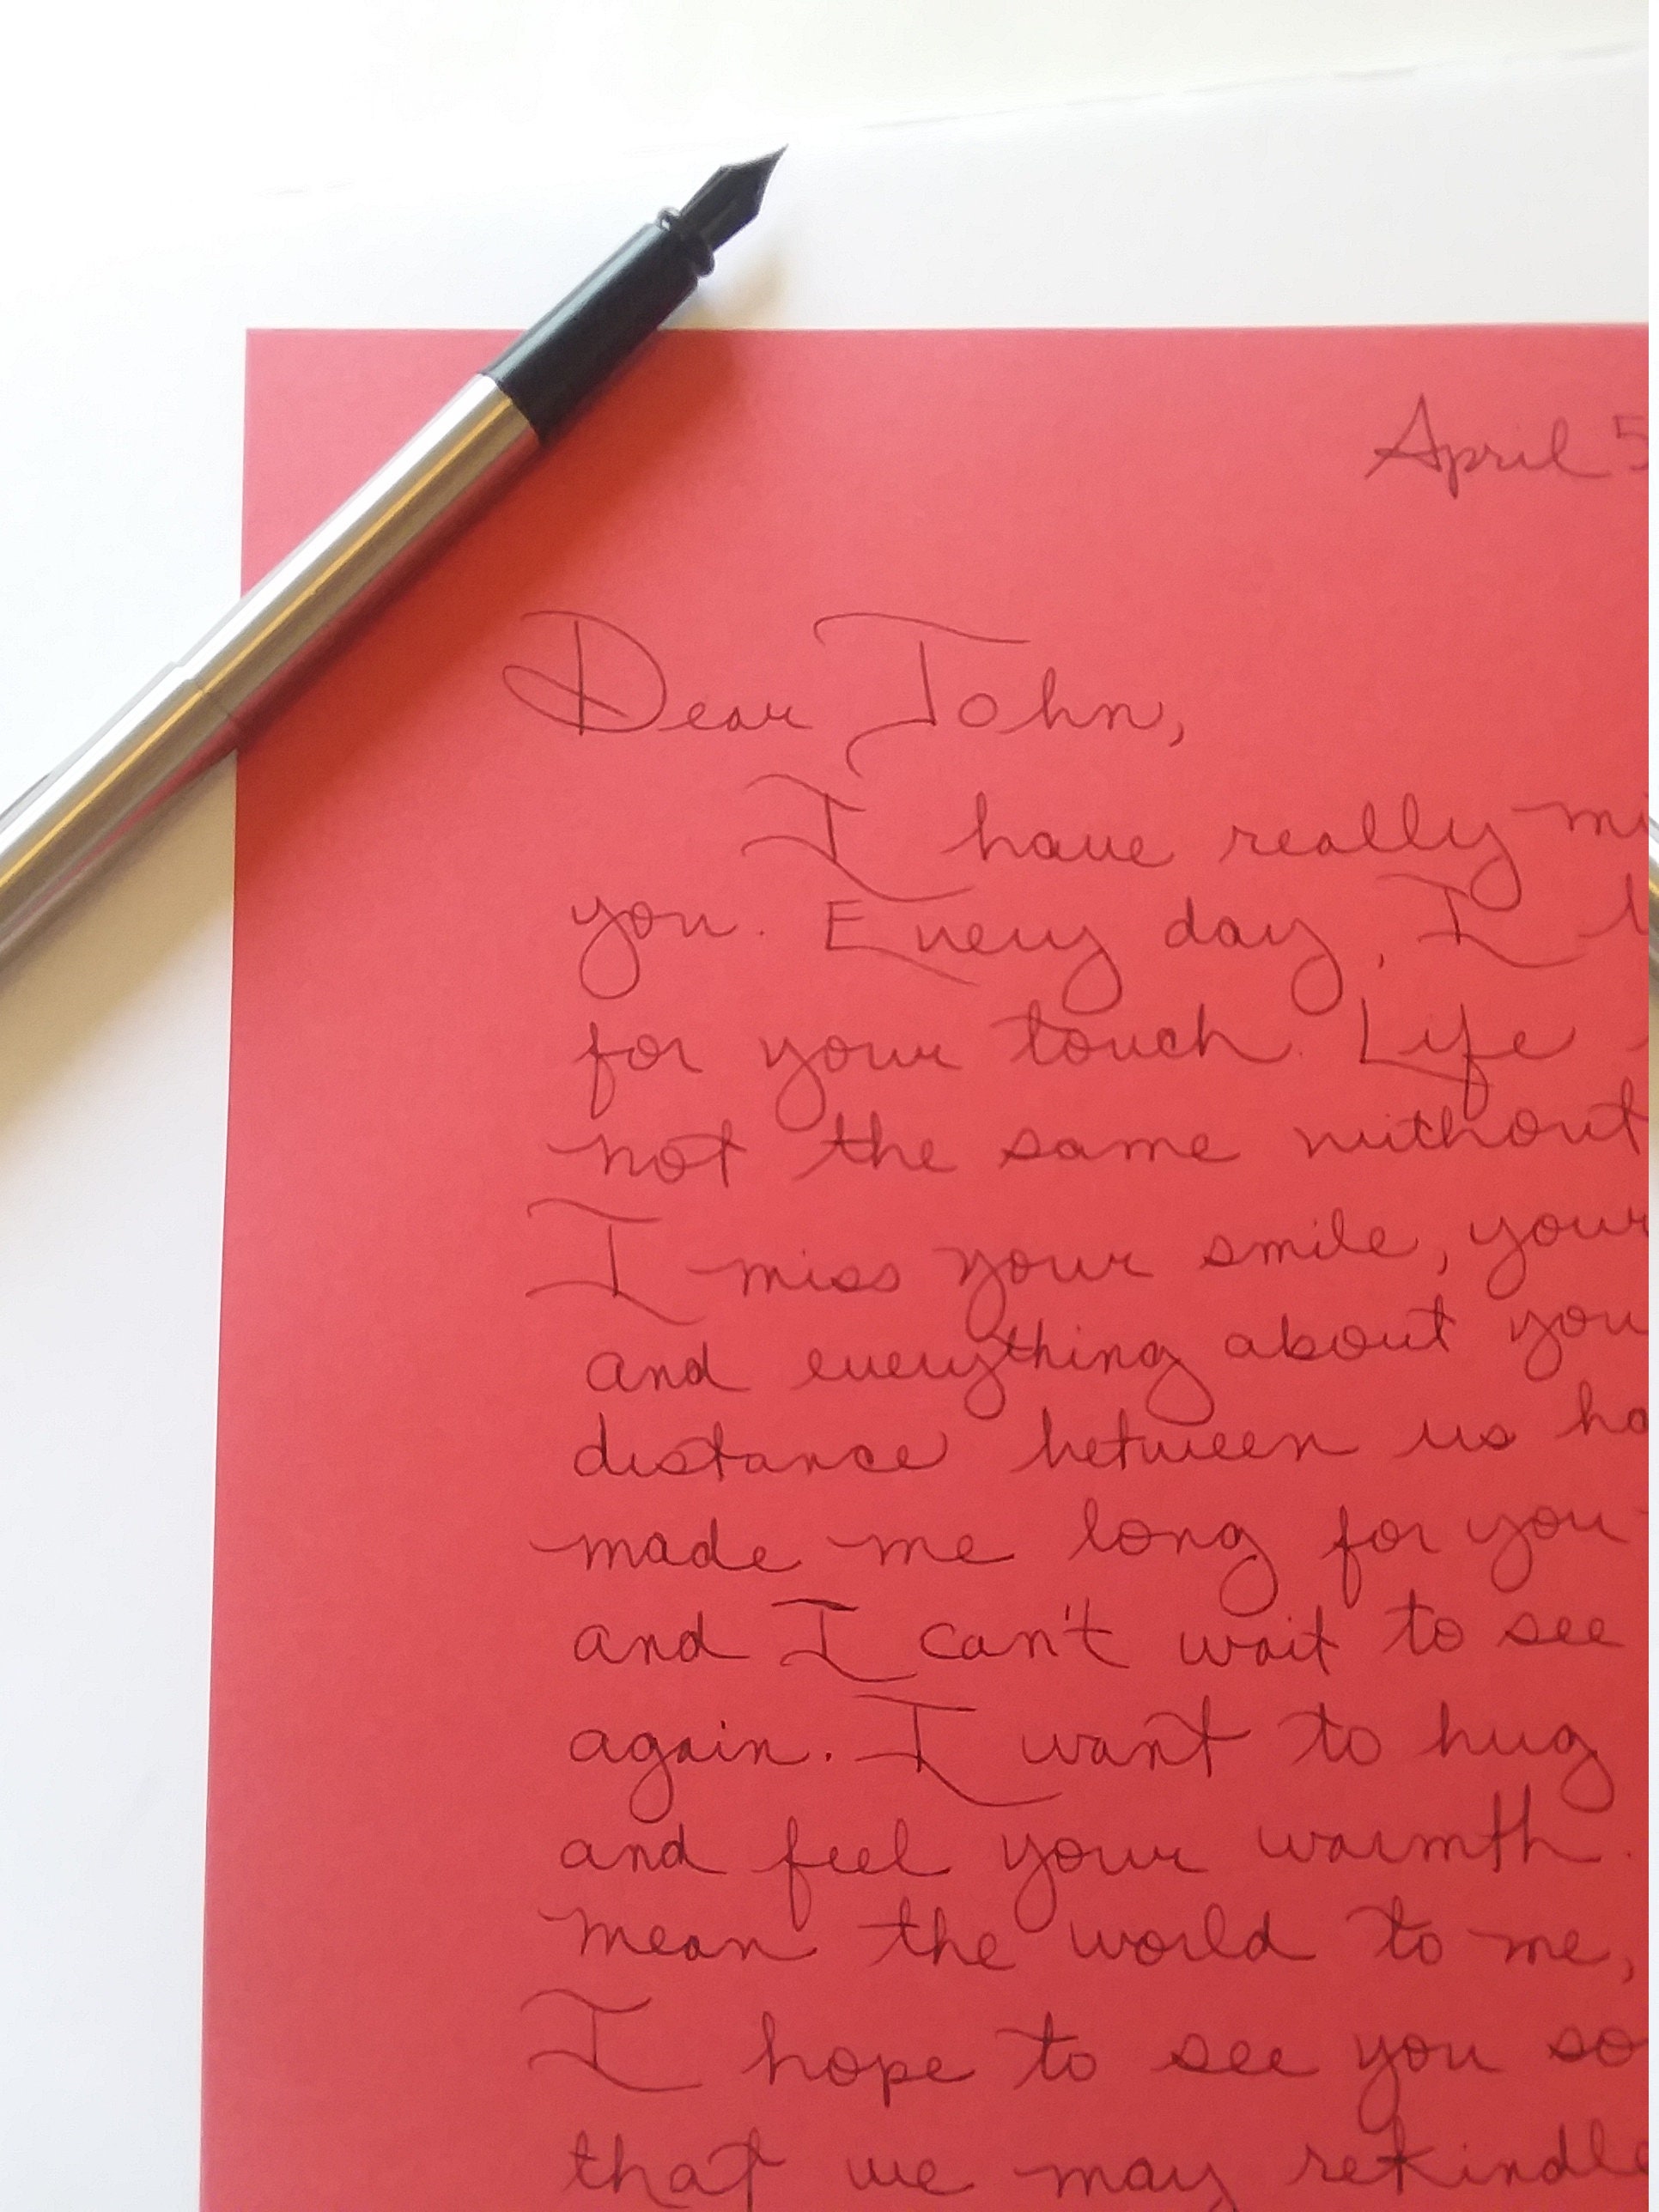 April 5
Dear John,
I have really mi
you. Every day, I l
for your touch. Life
not the same without
I miss your smile, your
and everything about you
distance between us ha
made me long for you
and I can't wait to see
again. I want to hug
and feel your warmth.
mean the world to me,
I hope to see you so
that we may rekindle